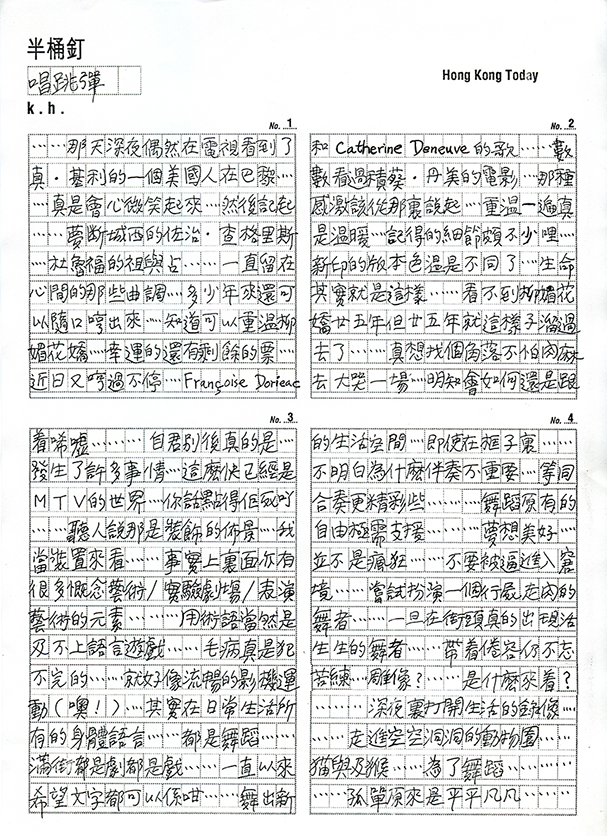 半桶釘
唱跳彈
k.h.
Hong Kong Today
No. 1
……那天深夜偶然在電視看到了
真·基利的一個美國人在巴黎…
…真是會心微笑起來…然後記起
……夢斷城西的佐治·查格里斯
…社魯福的祖與占……一直留在
心間的那些曲調…多少年來還可
以隨口哼出來…知道可以重溫柳
媚花嬌…幸運的還有剩餘的票…
近日又哼過不停…Françoise Dorleac
No. 2
和 Catherine Deneuve 的歌……數
數看過積葵·丹美的電影…那種
感激該從那裏說起…重溫一遍真
是溫暖…記得的細節頗不少哩…
新印的版本色溫是不同了…生命
其實就是這樣……看不到柳媚花
嬌廿五年但廿五年就這樣子溜過
去了……真想找個角落不怕肉麻
去大哭一場…明知會如何還是跟
No. 3
着唏噓……… 自君別後真的是…
發生了許多事情…這麼快已經是
MTV的世界…你話點得佢死吖
……聽人說那是裝飾的佈景…我
當裝置來看……事實上裏面亦有
很多概念藝術/實驗劇場/表演
藝術的元素……用術語當然是
及不上語言遊戲……毛病真是犯
不完的……就好像流暢的影機運
動(噢!)…其實在日常生活所
有的身體語言……都是舞蹈……
滿街都是劇都是戲……一直以來
希望文字都可以係咁……舞出新
No. 4
的生活空間…即使在框子裏……
不明白為什麼伴奏不重要…等同
合奏更精彩些……舞蹈原有的
自由極需支援……夢想美好…
並不是瘋狂……不要被逼進入窘
境……嘗試扮演一個行屍走肉的
舞者……一旦在街頭真的出現活
生生的舞者……帶着倦容仍不忘
苦練…雕像?……是什麼來着?
……深夜裏打開生活的錄像…
……走進空空洞洞的動物園……
貓與及猴……為了舞蹈………
……孤單原來是平平凡凡………